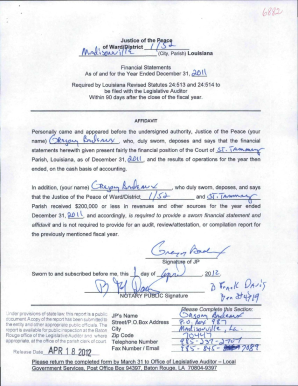 6882
Justice of the Peace
of Ward/District 1/52
Madisonville (City, Parish) Louisiana
Financial Statements
As of and for the Year Ended December 31, 2011
Required by Louisiana Revised Statutes 24:513 and 24:514 to
be filed with the Legislative Auditor
Within 90 days after the close of the fiscal year.
AFFIDAVIT
Personally came and appeared before the undersigned authority, Justice of the Peace (your
name) who, duly sworn, deposes and says that the
financial statements herewith given present fairly the financial position of the Court of St. Tammany
Parish, Louisiana, as of December 31, 2011 and the results of operations for the year then
ended, on the cash basis of accounting.
In addition, (your name) who duly sworn, deposes, and says
that the Justice of the Peace of Ward/District 1/52 and St. Tammany
Parish received $200,000 or less in revenues and other sources for the year ended
December 31, 2011 and accordingly, is required to provide a sworn financial statement and
affidavit and is not required to provide for an audit, review/attestation, or compilation report for
the previously mentioned fiscal year.
Signature of JP
Sworn to and subscribed before me, this day of April, 2012
NOTARY PUBLIC Signature
Under provisions of state law, this report is a public
document. A copy of the report has been submitted to
the entity and other appropriate public officials. The
report is available for public inspection at the Baton
Rouge office of the Legislative Auditor and, where
appropriate, at the office of the parish clerk of court.
Release Date APR 18 2012
Please Complete this Section:
JP's Name
Street/P.O.Box Address P.O. Box 987
City Madisonville, La
Zip Code 70447
Telephone Number
Fax Number / Email
Please return the completed form by March 31 to Office of Legislative Auditor – Local
Government Services, Post Office Box 94397, Baton Rouge, LA. 70804-9397